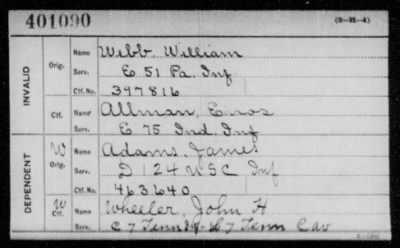 401090 (3-H-4)
INVALID
Orig. Name Webb, William
Serv. E 51 Pa. Inf.
Ctf. No. 397816
Ctf. Name Allman, Enos
Serv. E 75 Ind. Inf
DEPENDENT
W Orig. Name Adams, James
Serv. D 124 USC Inf
Ctf. No. 463640
W Ctf. Name Wheeler, John H
Serv. C 7 Tenn 7 Tenn Cav